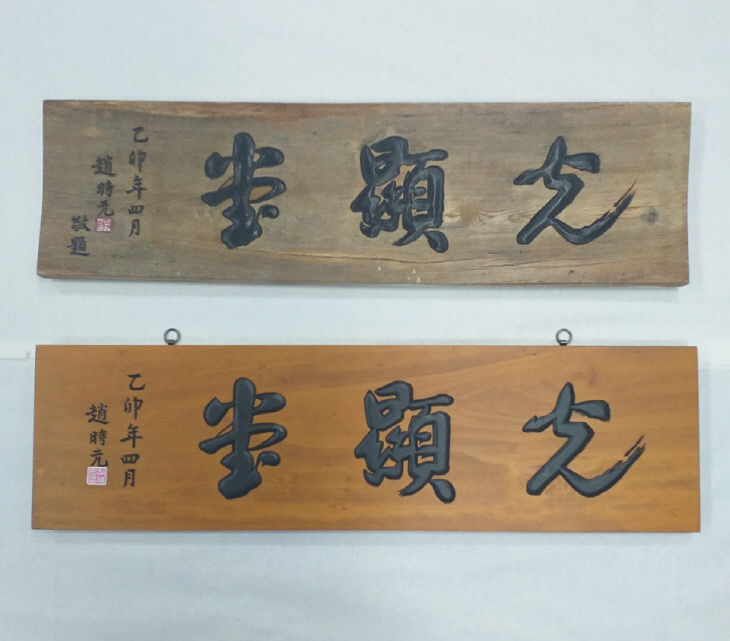 光顯堂
乙卯年四月
趙時元
敬題
光顯堂
乙卯年四月
趙時元